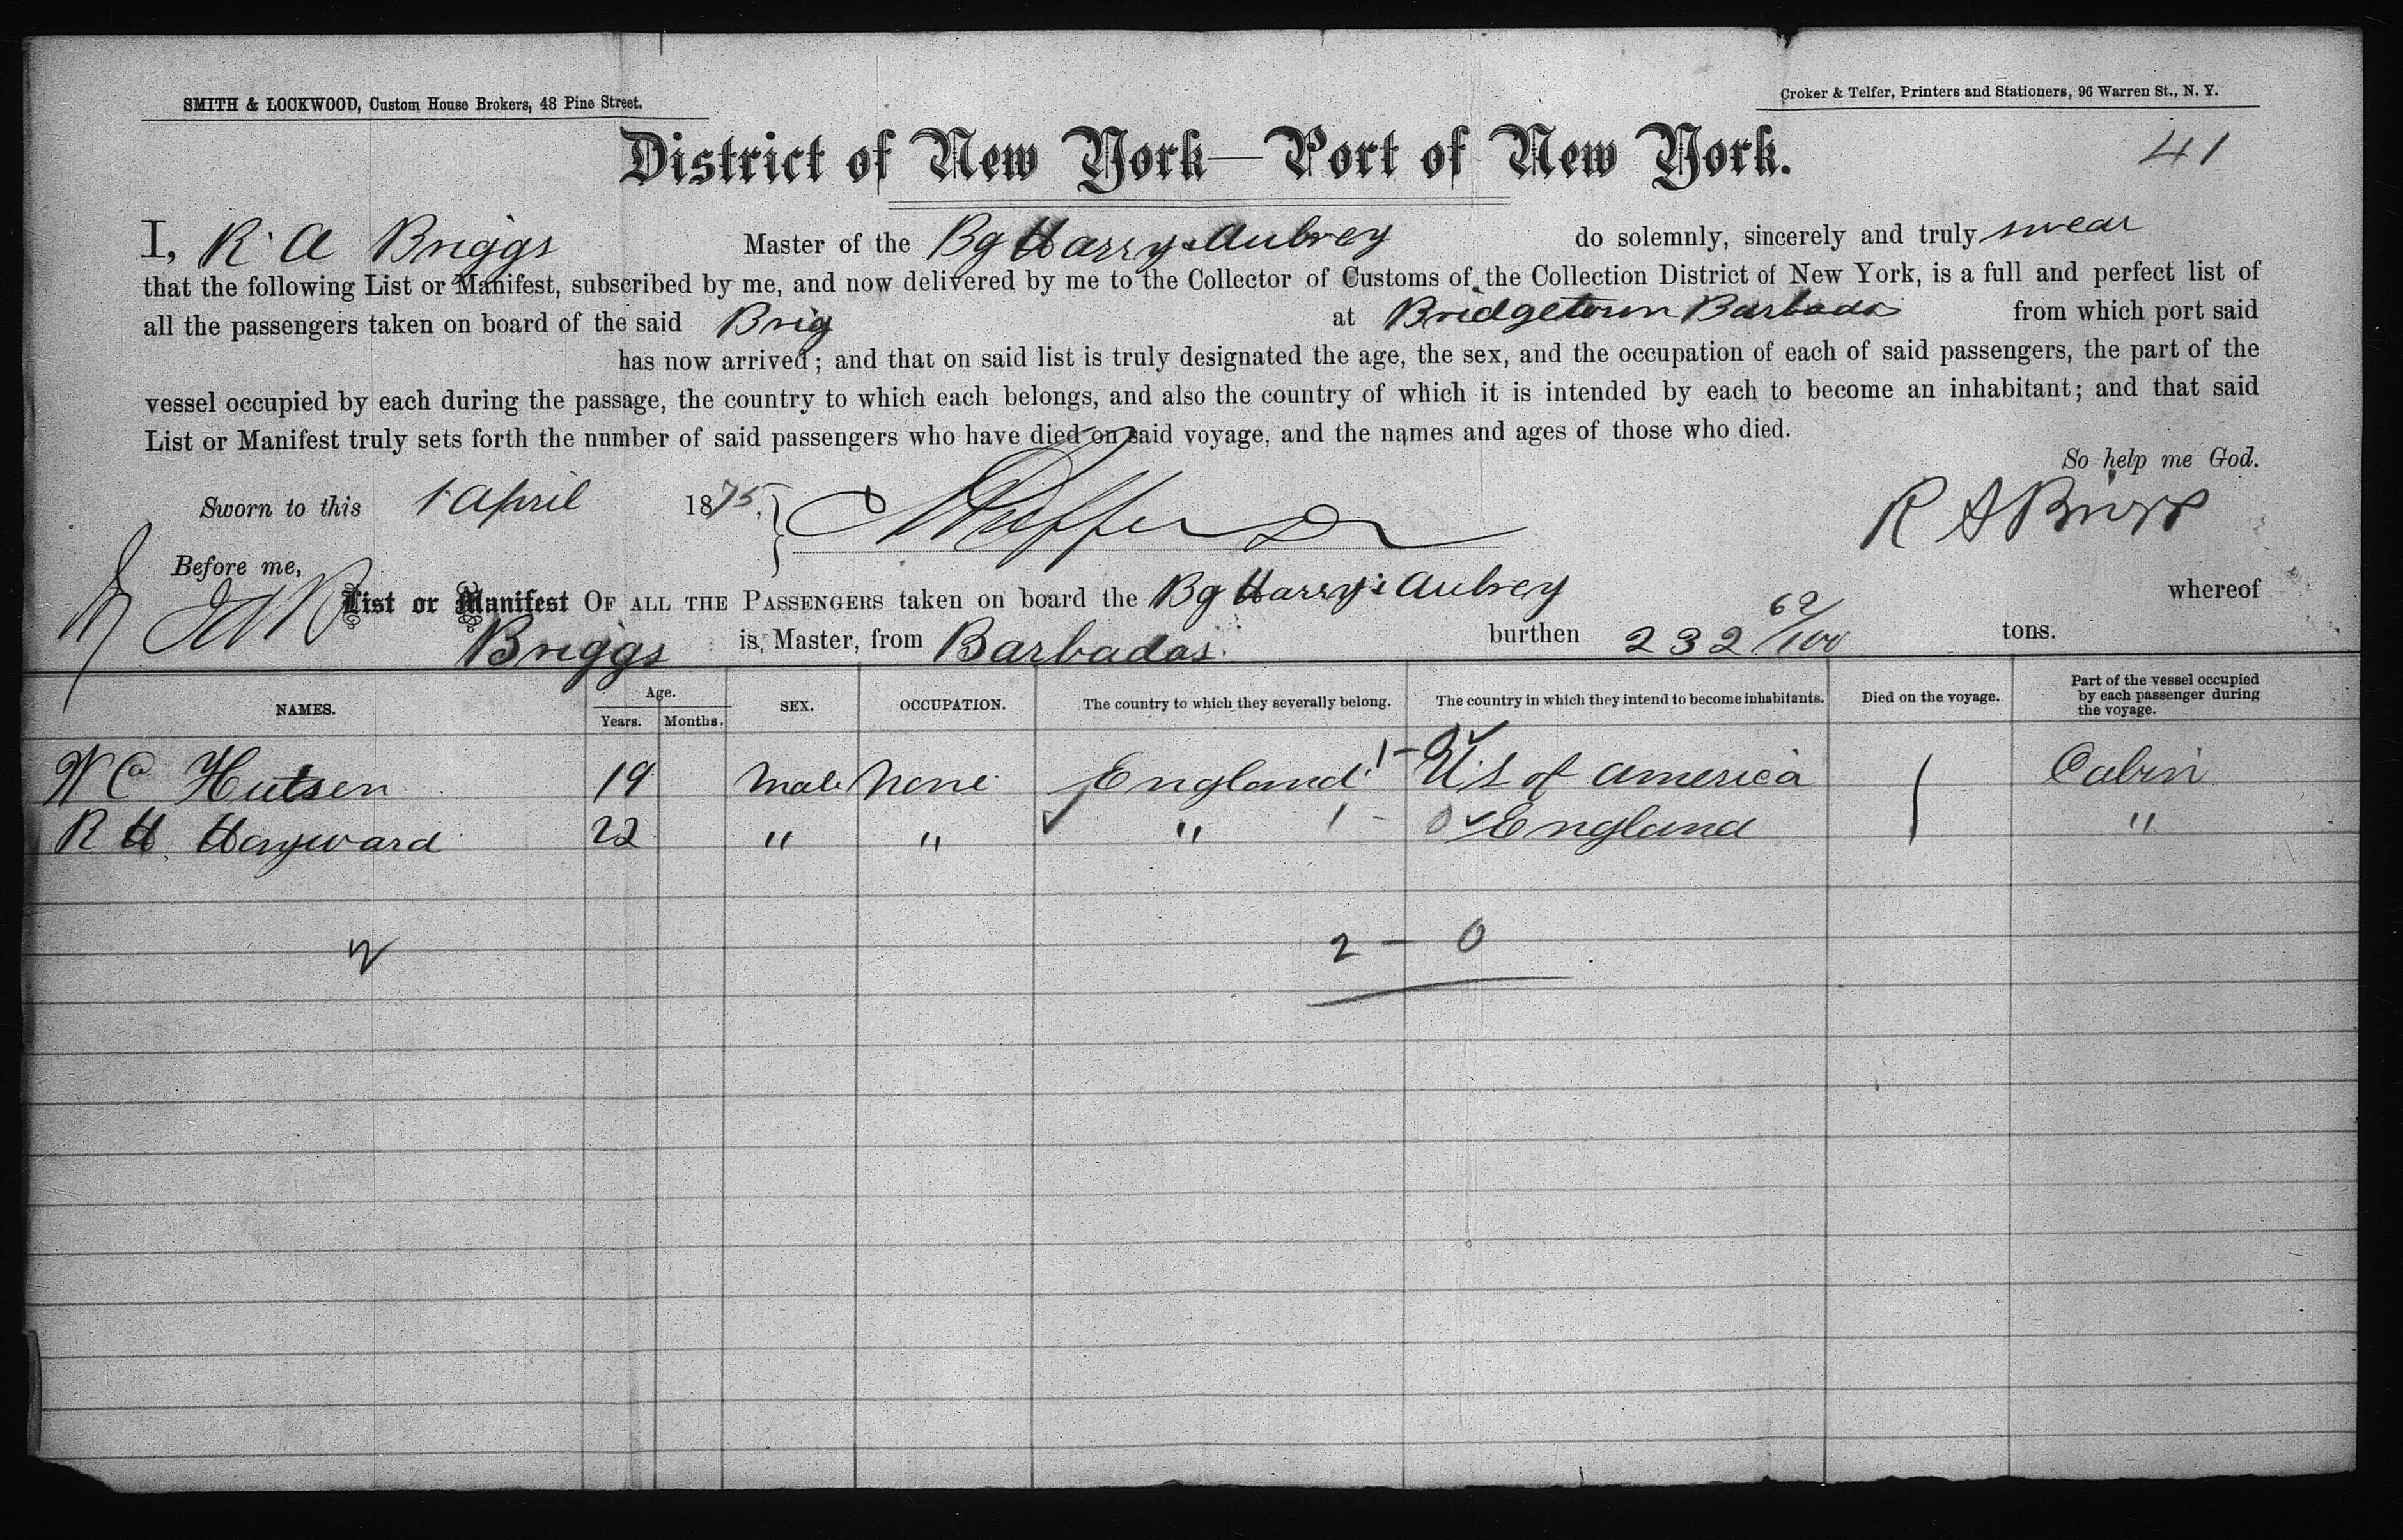 SMITH & LOCKWOOD, Custom House Brokers, 48 Pine Street.
Croker & Telfer, Printers and Stationers, 96 Warren St., N. Y.
District of New York—Port of New York.
41
I, R A Briggs Master of the Bg Harry & Aubrey do solemnly, sincerely and truly swear
that the following List or Manifest, subscribed by me, and now delivered by me to the Collector of Customs of the Collection District of New York, is a full and perfect list of
all the passengers taken on board of the said Brig at Bridgetown Barbados from which port said
has now arrived; and that on said list is truly designated the age, the sex, and the occupation of each of said passengers, the part of the
vessel occupied by each during the passage, the country to which each belongs, and also the country of which it is intended by each to become an inhabitant; and that said
List or Manifest truly sets forth the number of said passengers who have died on said voyage, and the names and ages of those who died.
So help me God.
Sworn to this 1 April 1875. R A Briggs
Before me,
List or Manifest OF ALL THE PASSENGERS taken on board the Bg Harry & Aubrey whereof
Briggs is Master, from Barbados. burthen 232 62/100 tons.
NAMES. Age. Years. Months. SEX. OCCUPATION. The country to which they severally belong. The country in which they intend to become inhabitants. Died on the voyage. Part of the vessel occupied by each passenger during the voyage.
W C Hutsen 19 Male None England 1 - 0 U.S of America Cabin
R H Hayward 22 " " " 1 - 0 England "
2 2 - 0